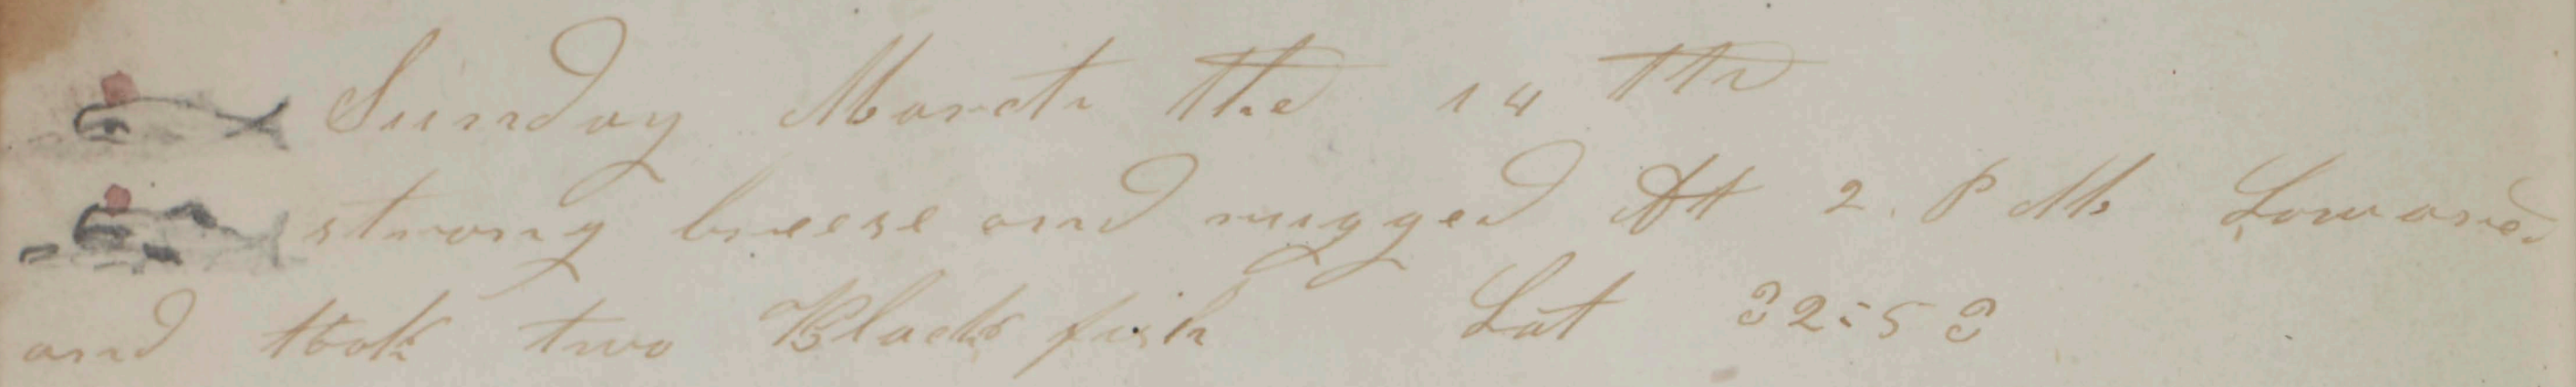 Sunday March the 14 th
strong breese and rugged At 2 P M Lowared
and took two Black fish Lat 32:53